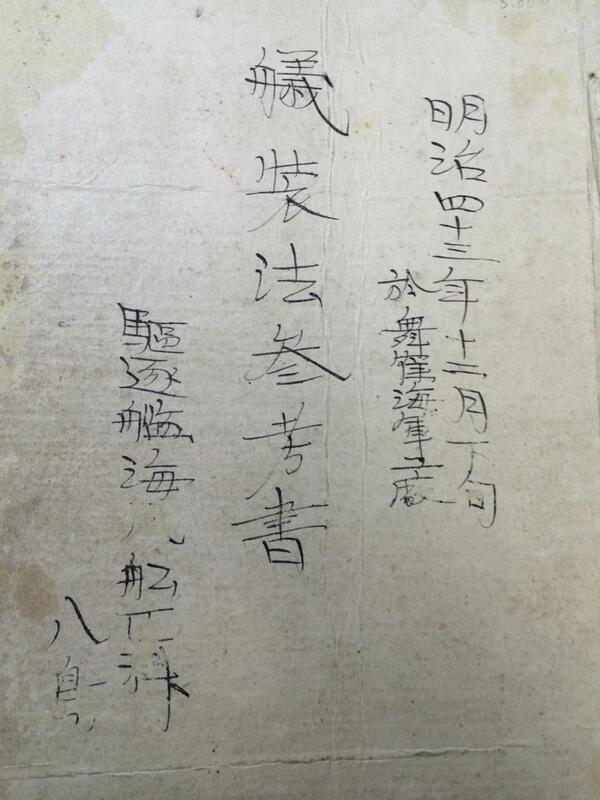 明治四十三年十二月下旬
於舞隺海軍工廠
艤裝法参考書
驅逐艦海 舩匠科
八島